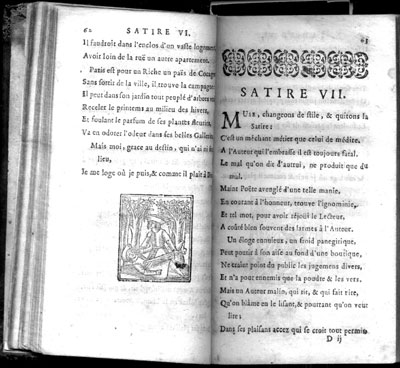 62 SATIRE VI.
Il faudroit dans l'enclos d'un vaste logement,
Avoir loin de la ruë un autre apartement.
Paris est pour un Riche un païs de Cocagne
Sans sortir de la ville, il trouve la campagne
Il peut dans son jardin tout peuplé d'arbres
Receler le printems au milieu des hivers,
Et foulant le parfum de ses plantes fleuries,
Va
Mais moi, grace au destin, qui n'ai ni
lieu,
Je me loge où je puis, & comme il plaît à
63
SATIRE VII.
MUSE, changeons de stile, & quitons la
Satire:
C'est un méchant métier que celui de médire.
A l'Auteur qui l'embrasse il est toujours fatal.
Le mal qu'on dit d'autrui, ne produit que du
mal.
Maint Poëte aveuglé d'une telle manie,
En courant à l'honneur, trouve l'ignominie,
Et tel mot, pour avoir réjoüi le Lecteur,
A coûté bien souvent des larmes à l'Auteur.
Un éloge ennuieux, un froid panegirique,
Peut pourir à son aise au fond d'une boutique,
Ne craint point du public les jugemens divers,
Et n'a pour ennemis que la poudre & les vers.
Mais un Auteur malin, qui rit, & qui fait rire,
Qu'on blâme en le lisant, & pourtant qu'on veut
lire:
Dans ses plaisans accez qui se croit tout permis
D ij